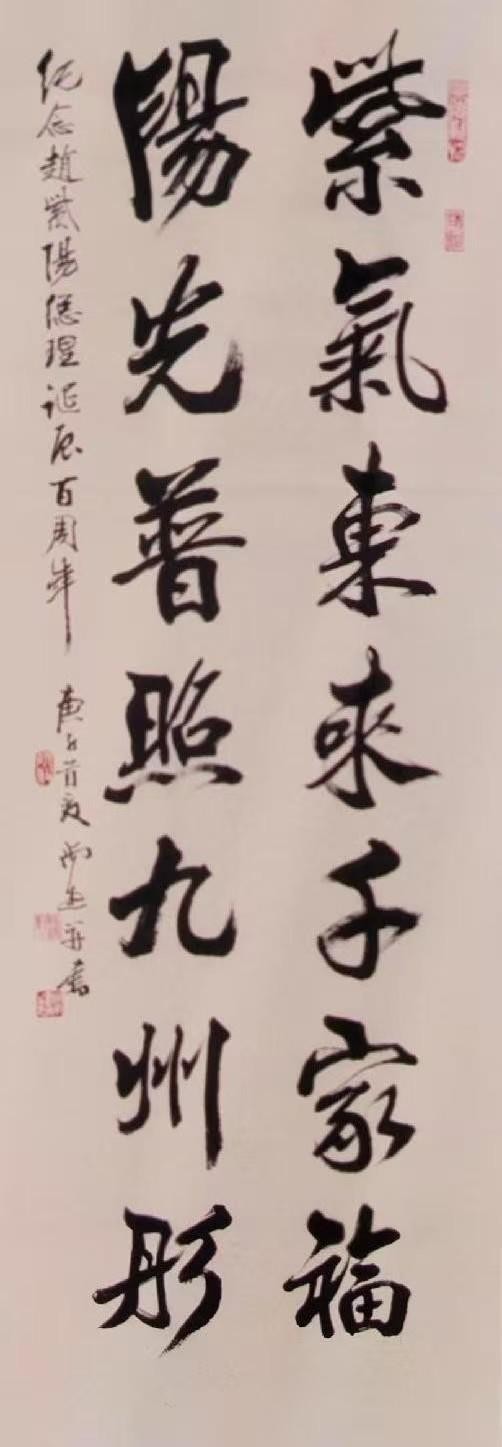 紫氣東來千家福
陽光普照九州彤
纪念趙紫陽總理诞辰百周年
庚子首夏 書